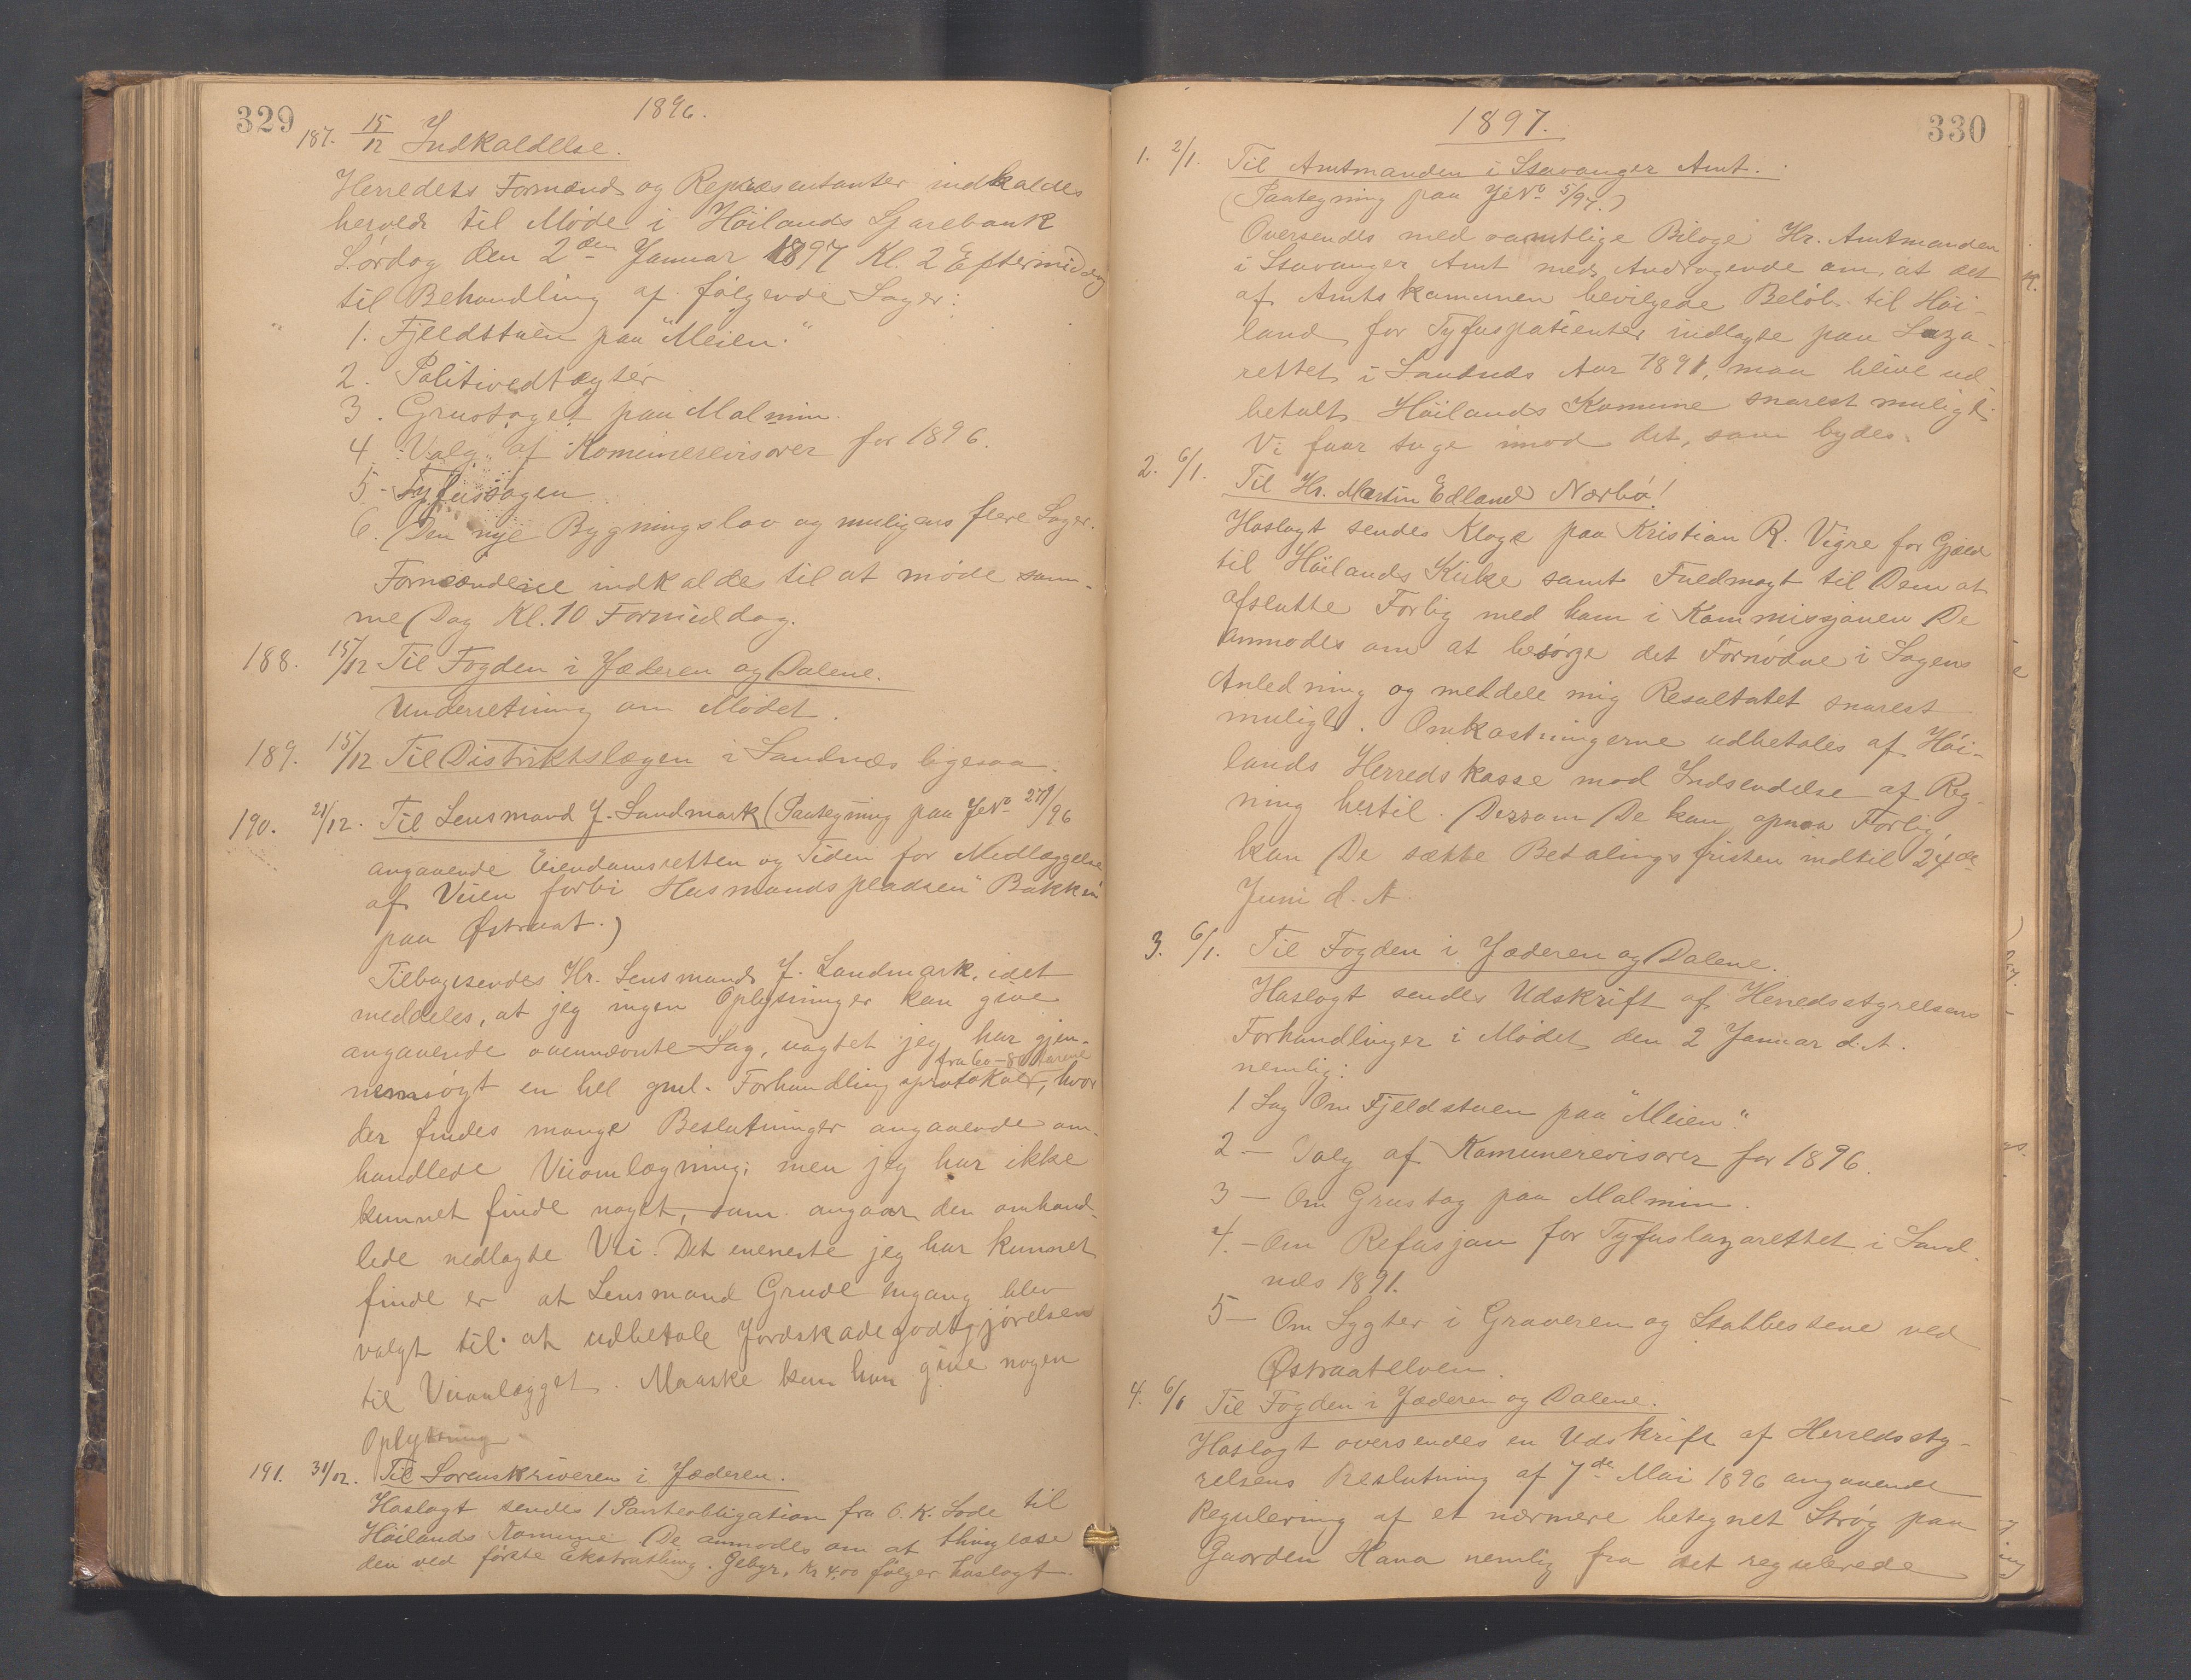 329
1896.
187. 15/12 Indkaldelse.
Herredets Formænd og Repræsentanter indkaldes
herved til Møde i Höilands Sparebank
Lørdag den 2den Januar 1897 Kl. 2 Eftermiddag
til Behandling af følgende Sager:
1. Fjeldstuen paa "Meien."
2. Politivedtægter
3. Grustaget paa Malmin.
4. Valg af Komunerevisorer for 1896.
5. Tyfussagen
6. Den nye Bygningslov og muligens flere Sager.
Formændene indkaldes til at møde sam-
me Dag Kl. 10 Formiddag.
188. 15/12 Til Fogden i Jæderen og Dalene.
Underretning om Mødet.
189. 15/12 Til Distriktslægen i Sandnæs ligesaa.
190. 21/12. Til Lensmand J. Landmark (Paategning paa JNo 271/96
angaaende Eiendomsretten og Tiden for Nedlæggelse
af Veien forbi Husmandspladsen "Bakken"
paa Østraat.)
Tilbagesendes Hr. Lensmand J. Landmark, idet
meddeles, at jeg ingen Oplysninger kan give
angaaende ovennævnte Sag, uagtet jeg har gjen-
fra 60-80 aarene
nemsøgt en hel gml. Forhandlingsprotokol, hvor
der findes mange Beslutninger angaaende om-
handlede Veiomlægning; men jeg har ikke
kunnet finde noget, som angaar den omhand-
lede nedlagte Vei. Det eneneste jeg har kunnet
finde er at Lensmand Grude engang blev
valgt til at udbetale Jordskadegodtgjørelsen
til Veianlægget. Maaske kan han give nogen
Oplysning
191. 31/12. Til Sorenskriveren i Jæderen.
Haslagt sendes 1 Panteobligation fra O. K. Lode til
Höilands Komune. De anmodes om at thinglæse
den ved første Ekstrathing. Gebyr, Kr 4.00 følger haslagt.
330
1897.
1. 2/1. Til Amtmanden i Stavanger Amt.
(Paategning paa JNo 5/97.)
Oversendes med samtlige Bilage Hr. Amtmanden
i Stavanger Amt med Andragende om, at det
af Amtskomunen bevilgede Beløb til Höi-
land for Tyfuspatienter indlagte paa Laza-
rettet i Sandnes Aar 1891, maa blive ud-
betalt Höilands Komune snarest muligt.
Vi faar tage imod det, som bydes.
2. 6/1. Til Hr. Martin Edland Nærbø!
Haslagt sendes Klage paa Kristian R. Vigre for Gjæld
til Höilands Kirke samt Fuldmagt til Dem at
afslutte Forlig med ham i Kommissjonen De
anmodes om at besørge det Fornødne i Sagens
Anledning og meddele mig Resultatet snarest
muligt. Omkostningerne udbetales af Höi-
lands Herredskasse mod Indsendelse af Reg-
ning hertil. Dersom De kan opnaa Forlig,
kan De sætte Betalingsfristen indtil 24de
Juni d. A.
3. 6/1. Til Fogden i Jæderen og Dalene.
Haslagt sendes Udskrift af Herredsstyrelsens
Forhandlinger i Mødet den 2 Januar d. A.
nemlig:
1 Sag Om Fjeldstuen paa "Meien".
2 — Valg af Komunerevisorer for 1896.
3 — Om Grustag paa Malmin.
4. — Om Refusjon for Tyfuslazarettet i Sand-
næs 1891.
5 — Om Lygter i Graveren og Stabbestene ved
Østraatelven.
4. 6/1 Til Fogden i Jæderen og Dalene.
Haslagt oversendes en Udskrift af Herredssty-
relsens Beslutning af 7de Mai 1896 angaaende
Regulering af et nærmere betegnet Strøg paa
Gaarden Hana nemlig fra det regulerede